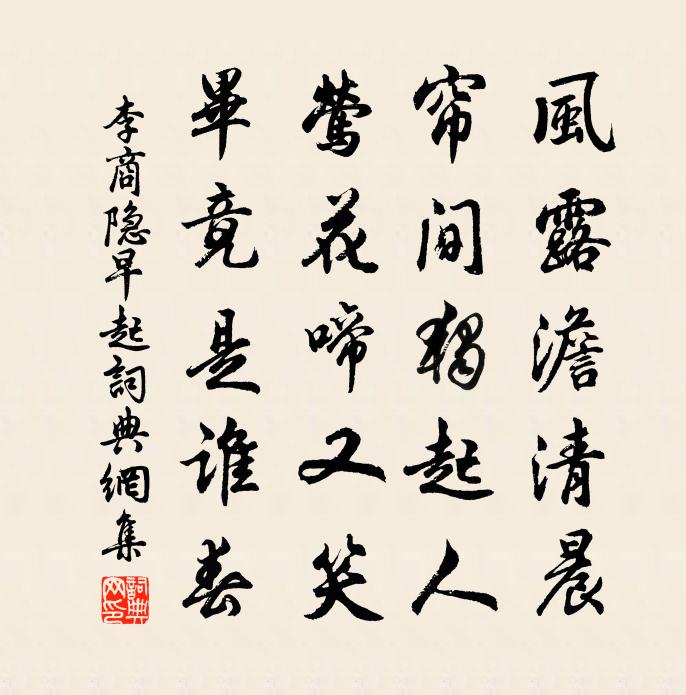 風露澹清晨
帘间獨起人
鶯花啼又笑
畢竟是誰春
李商隐早起詞典網集
詞典网印